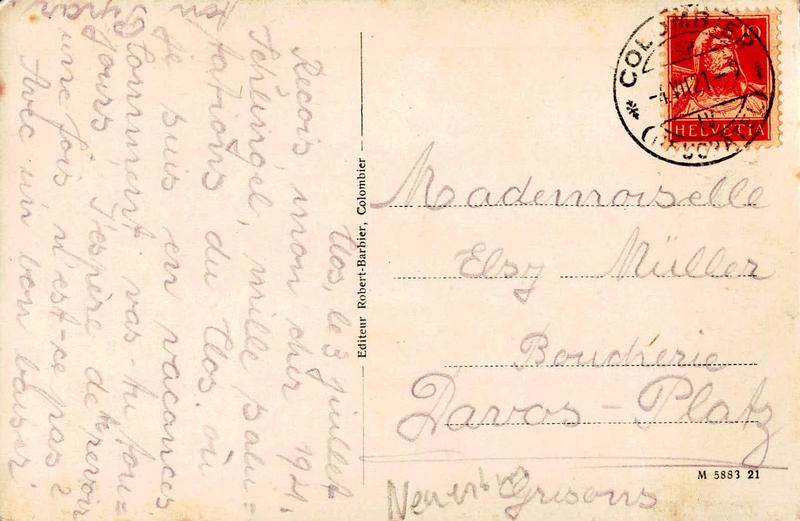 Clos, le 3 juillet
1921.
Recois, mon cher
Schlingel, mille salu=
tations du Clos. où
je suis en vacances
Comment vas-tu tou=
jours, j'espère de te revoir
une fois n'est-ce pas?
Avec un bon baiser
Editeur Robert-Barbier, Colombier
COLOMBIER
-4.VII.21.-
IV
HELVETIA
Mademoiselle
Elsy Müller
Boucherie
Davos-Platz
Grisons
M 5883 21